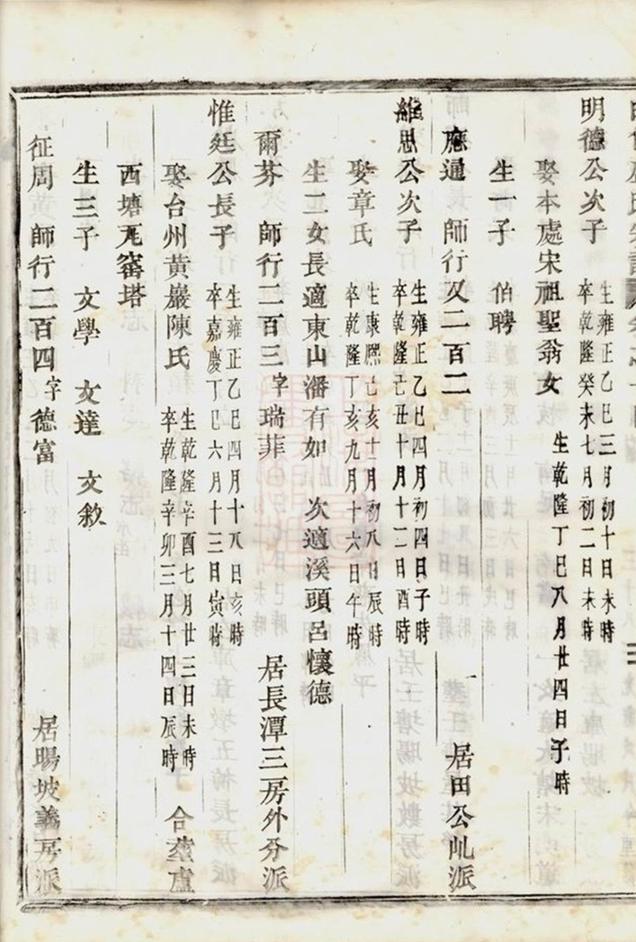 明德公次子
生雍正乙巳三月初十日未時
卒乾隆癸未七月初二日未時
娶本處宋祖聖翁女
生乾隆丁巳八月廿四日子時
生一子 伯聘
應通 師行又二百二 居田公乢派
維思公次子
生雍正乙巳四月初四日子時
卒乾隆己丑十月十二日酉時
娶章氏
生康熙己亥十二月初八日辰時
卒乾隆丁亥九月十六日午時
生二女長適東山潘有如 次適溪頭呂懷德
爾芬 師行二百三字瑞菲 居長潭三房外分派
惟廷公長子
生雍正乙巳四月十八日亥時
卒嘉慶丁巳六月十三日寅時
娶台州黃巖陳氏
生乾隆辛酉七月廿三日未時
卒乾隆辛卯三月十四日辰時
合塟盧
西塘瓦窰塔
生三子 文學 文達 文敘
征周 師行二百四字德富 居暘坡義房派